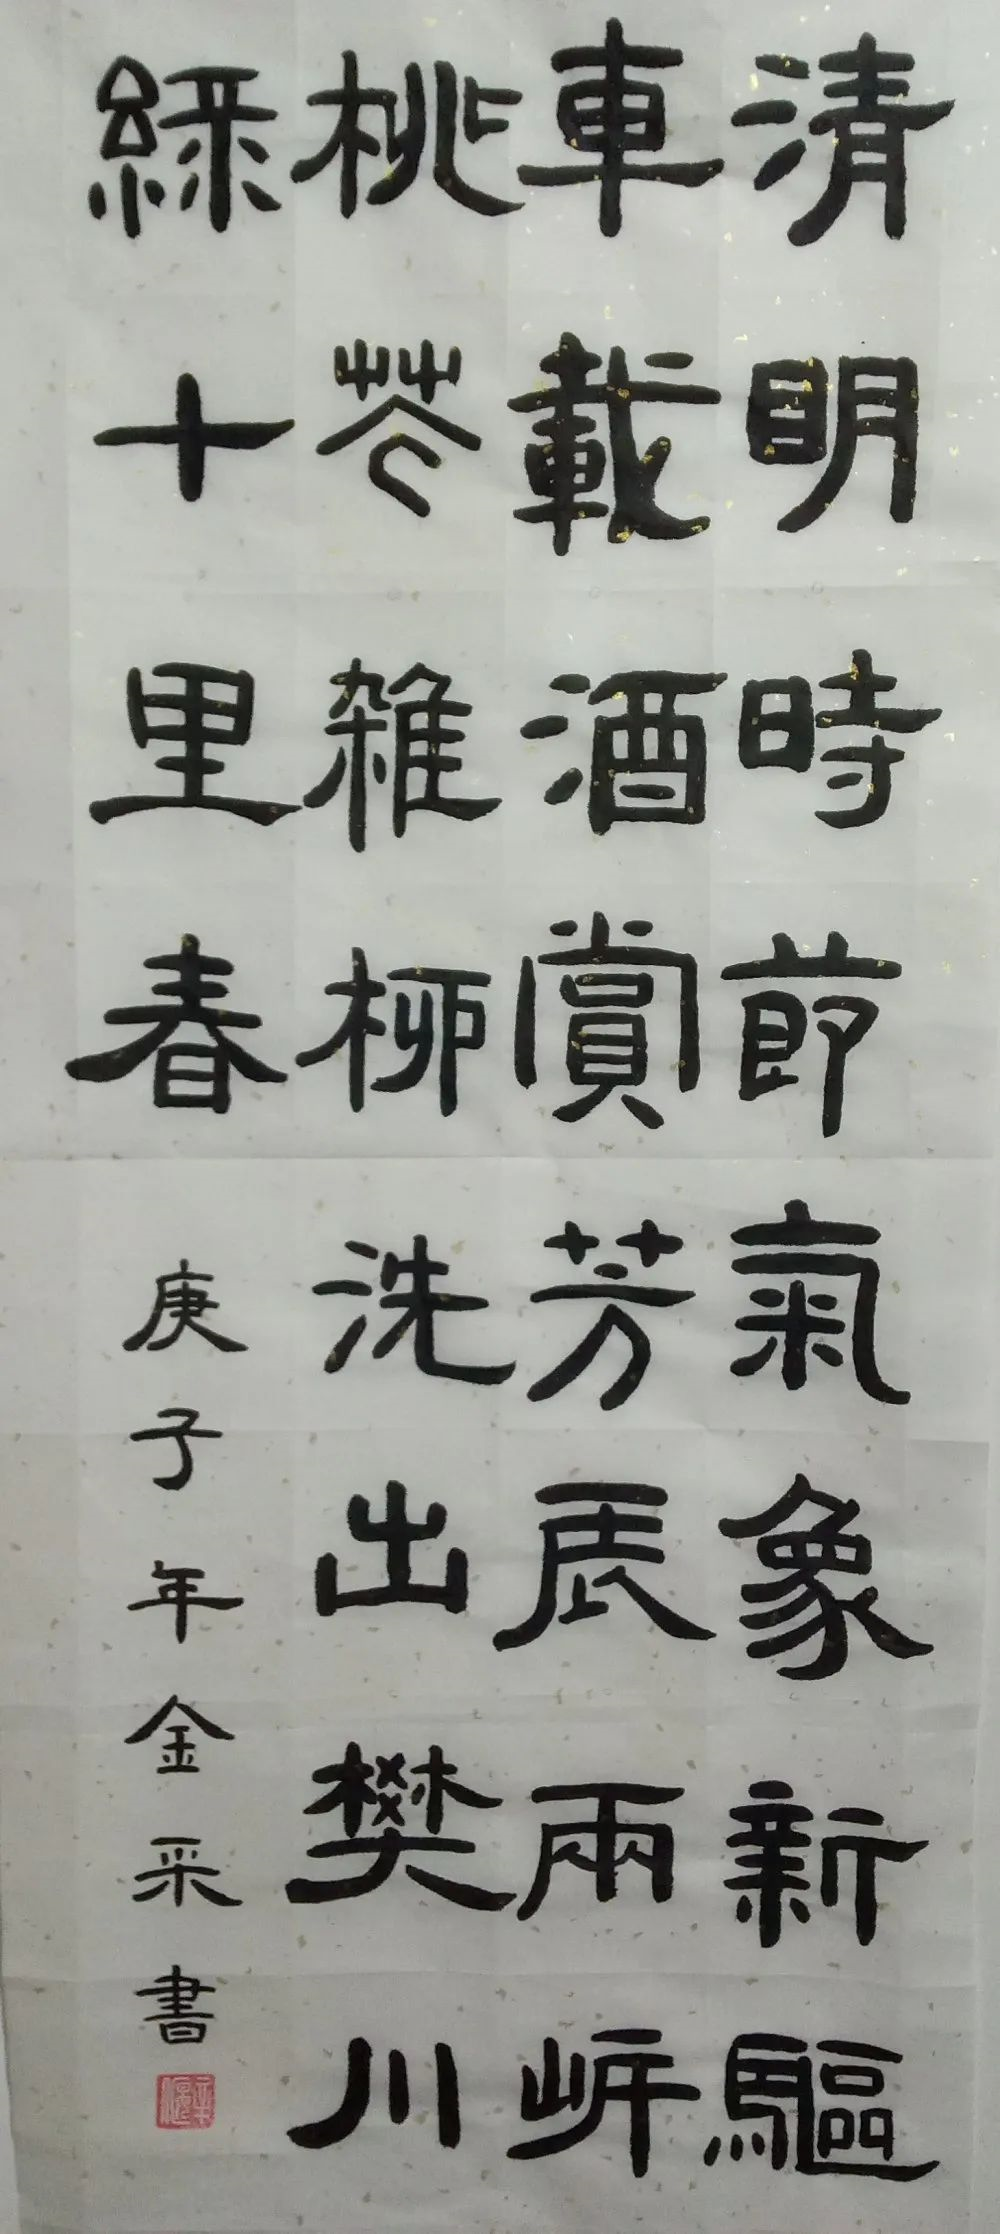 清明時節氣象新驅
車載酒賞芳辰兩岸
桃花雜柳洗出樊川
綠十里春
庚子年金采書